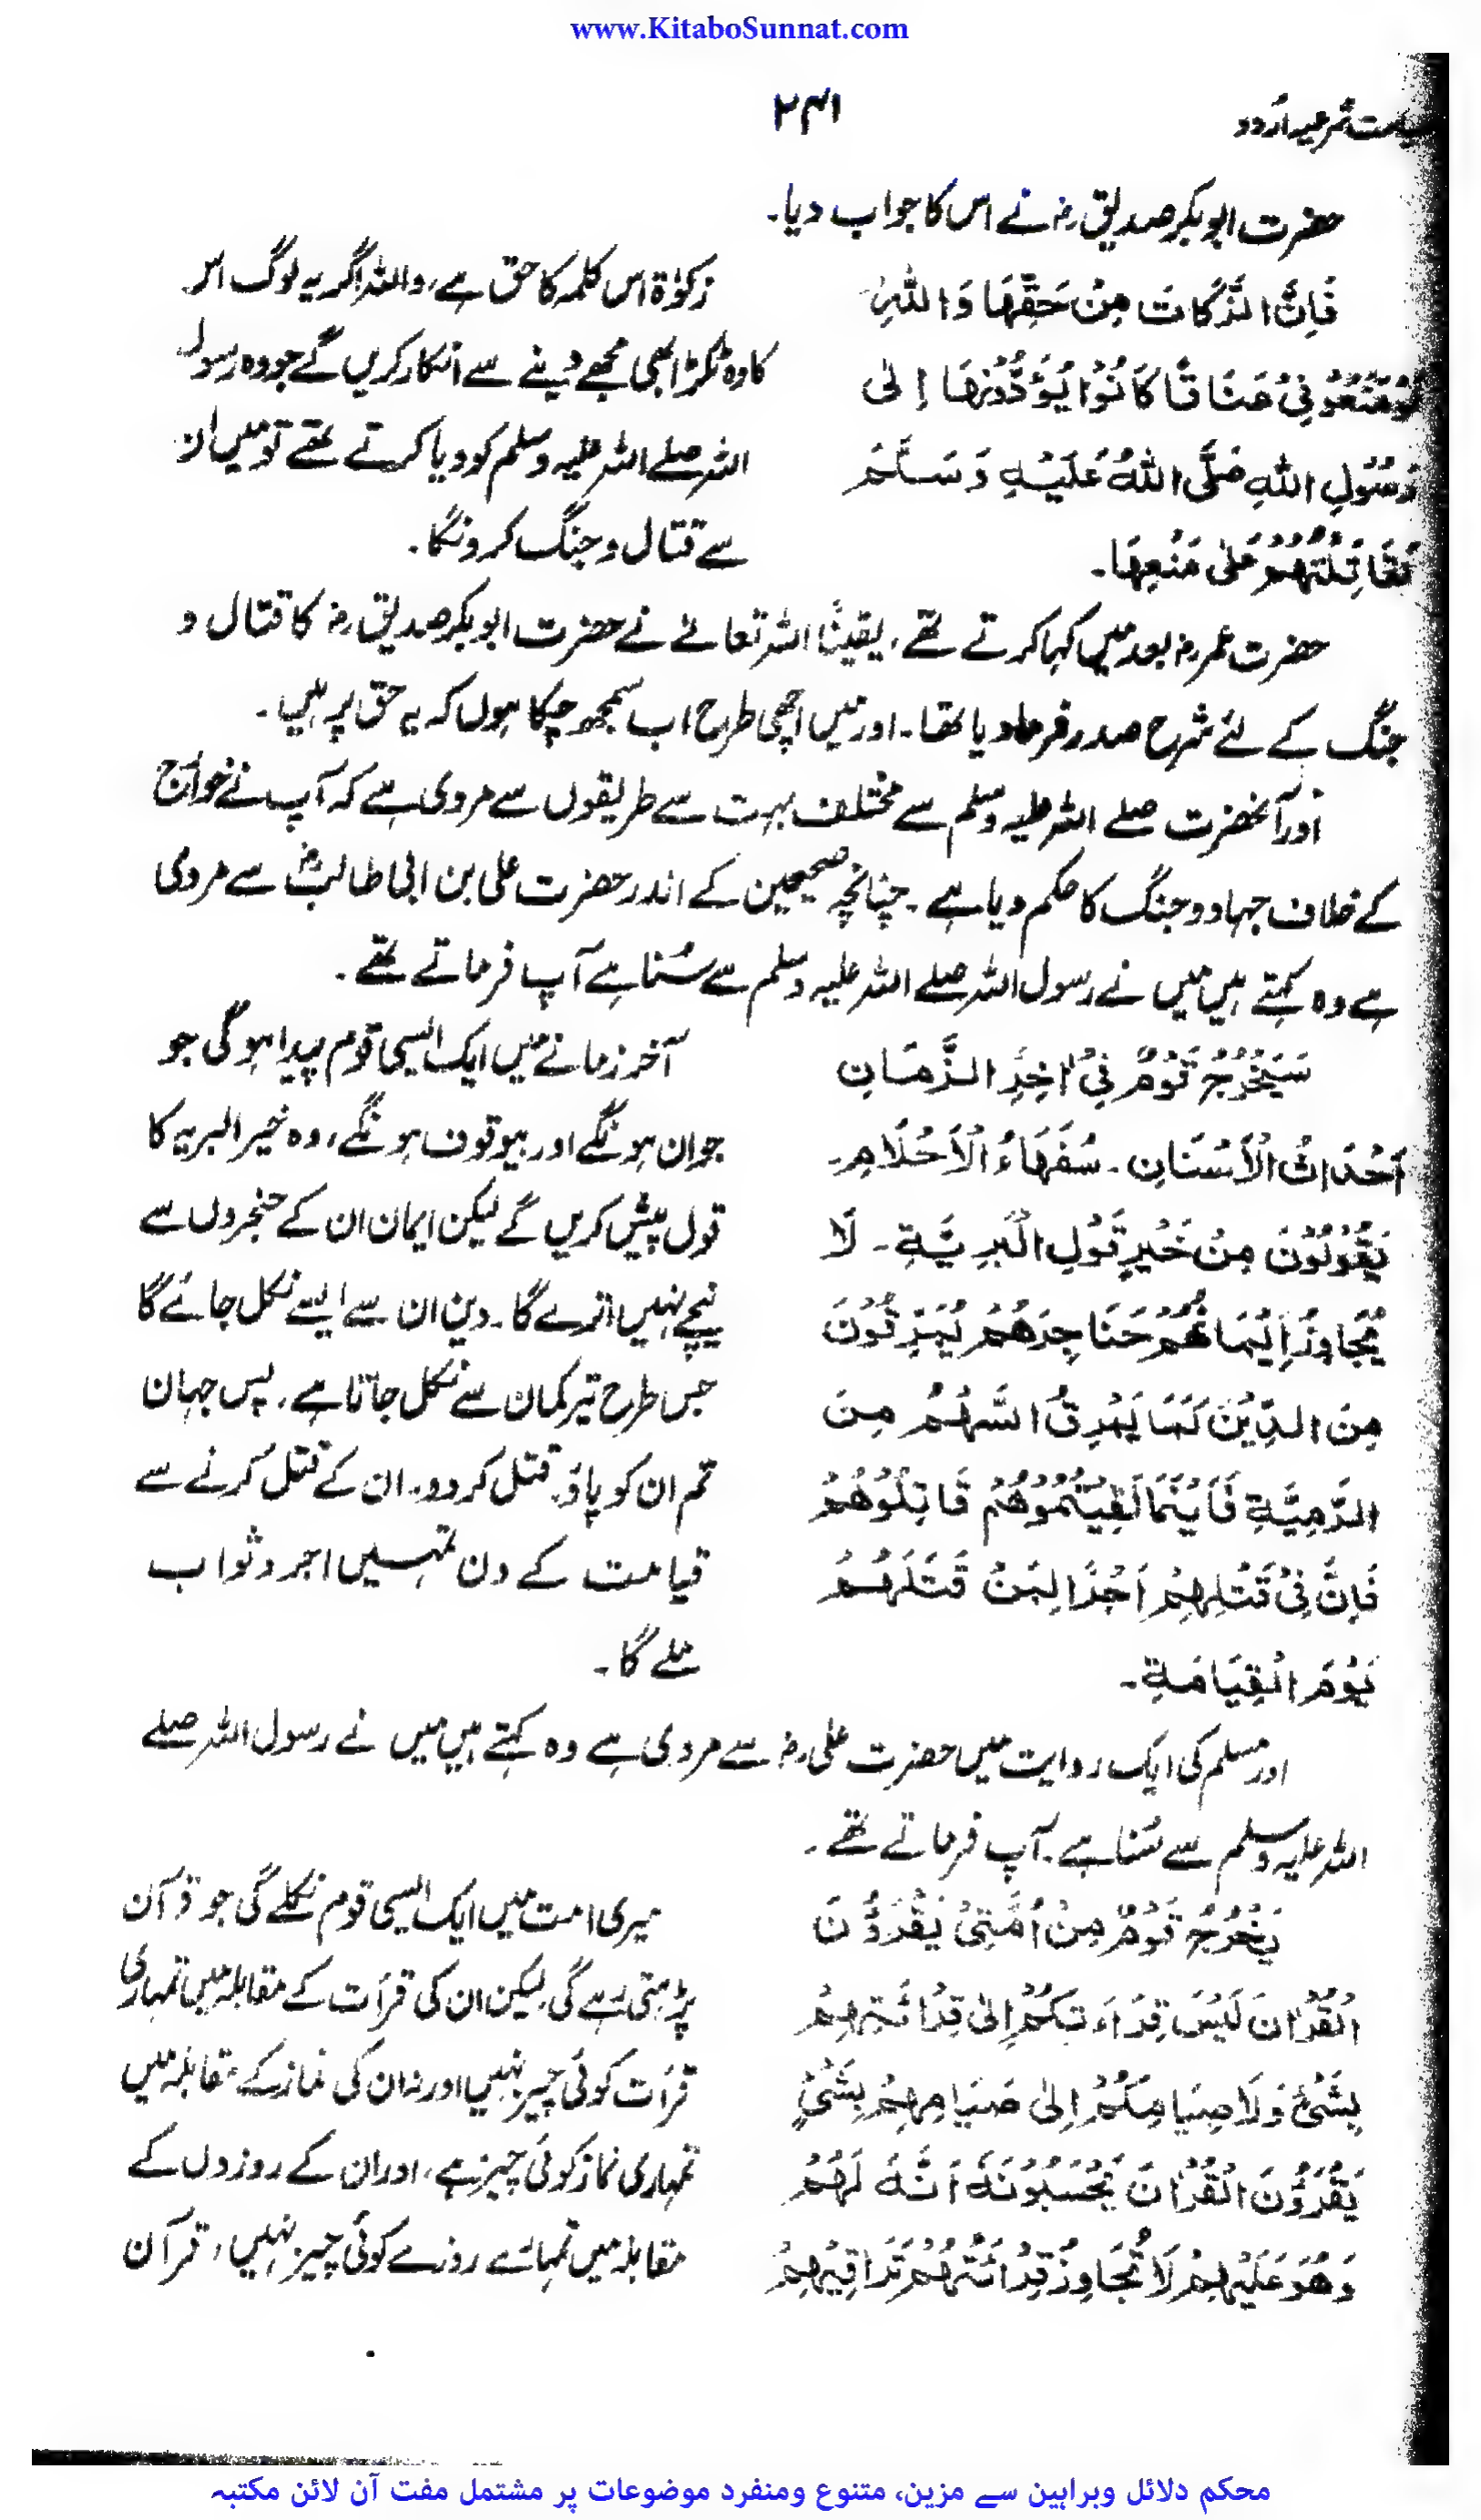 www.KitaboSunnat.com
۲۴۱
شرعیہ اردو
حضرت ابوبکر صدیق رض نے اس کا جواب دیا۔
فَإِنَّ الزَّكَاتَ مِنْ حَقِّهَا وَاللّٰهِ
لَوْمَنَعُوْنِیْ عَنَاقًا كَانُوْا يُؤَدُّوْنَهَا اِلٰی
رَسُوْلِ اللّٰهِ صَلَّی اللّٰهُ عَلَيْهِ وَسَلَّمَ
لَقَاتَلْتُهُمْ عَلٰی مَنْعِهَا۔
زکوٰۃ اس کلمہ کا حق ہے، واللہ اگر یہ لوگ اس
کا وہ ٹکڑا بھی مجھے دینے سے انکار کریں گے جو وہ رسول
اللہ صلے اللہ علیہ وسلم کو دیا کرتے تھے تو میں ان
سے قتال و جنگ کرونگا۔
حضرت عمر رض بعد میں کہا کرتے تھے، یقیناً اللہ تعالےٰ نے حضرت ابوبکر صدیق رض کا قتال و
جنگ کے لئے شرح صدر فرما دیا تھا۔ اور میں اچھی طرح اب سمجھ چکا ہوں کہ یہ حق پر ہیں۔
اور آنحضرت صلے اللہ علیہ وسلم سے مختلف بہت سے طریقوں سے مروی ہے کہ آپ نے خوارج
کے خلاف جہاد و جنگ کا حکم دیا ہے۔ چنانچہ صحیحین کے اندر حضرت علی بن ابی طالبؓ سے مروی
ہے وہ کہتے ہیں میں نے رسول اللہ صلے اللہ علیہ وسلم سے سُنا ہے آپ فرماتے تھے۔
سَيَخْرُجُ قَوْمٌ فِیْ اٰخِرِ الزَّمَانِ
اَحْدَاثُ الْاَسْنَانِ۔ سُفَهَاءُ الْاَحْلَامِ۔
يَقُوْلُوْنَ مِنْ خَيْرِ قَوْلِ الْبَرِيَّةِ۔ لَا
يُجَاوِزُ اِيْمَانُهُمْ حَنَاجِرَهُمْ يَمْرُقُوْنَ
مِنَ الدِّيْنِ كَمَا يَمْرِقُ السَّهْمُ مِنَ
الرَّمِيَّةِ فَاَيْنَمَا لَقِيْتُمُوْهُمْ فَاقْتُلُوْهُمْ
فَاِنَّ فِیْ قَتْلِهِمْ اَجْرًا لِمَنْ قَتَلَهُمْ
يَوْمَ الْقِيَامَةِ۔
آخر زمانے میں ایک ایسی قوم پیدا ہوگی جو
جوان ہونگے اور بیوقوف ہونگے، وہ خیر البریہ کا
قول پیش کریں گے لیکن ایمان ان کے حنجروں سے
نیچے نہیں اترے گا۔ دین ان سے ایسے نکل جائے گا
جس طرح تیر کمان سے نکل جاتا ہے، پس جہان
تم ان کو پاؤ قتل کر دو۔ ان کے قتل کرنے سے
قیامت کے دن تمہیں اجر و ثواب
ملے گا۔
اور مسلم کی ایک روایت میں حضرت علی رض سے مروی ہے وہ کہتے ہیں میں نے رسول اللہ صلے
اللہ علیہ وسلم سے سُنا ہے آپ فرماتے تھے۔
يَخْرُجُ قَوْمٌ مِنْ اُمَّتِیْ يَقْرَؤُنَ
الْقُرْاٰنَ لَيْسَ قِرَاءَتُكُمْ اِلٰی قِرَائَتِهِمْ
بِشَیْئٍ وَلَا صِيَامُكُمْ اِلٰی صِيَامِهِمْ بِشَیْئٍ
يَقْرَؤُنَ الْقُرْاٰنَ يَحْسَبُوْنَهٗ اَنَّهٗ لَهُمْ
وَهُوَ عَلَيْهِمْ لَا تُجَاوِزُ قِرْائَتُهُمْ تَرَاقِيْهِمْ
میری امت میں ایک ایسی قوم نکلے گی جو قرآن
پڑھتی رہے گی لیکن ان کی قرأت کے مقابلہ میں تمہاری
قرأت کوئی چیز نہیں اور نہ ان کی نماز کے مقابلہ میں
تمہاری نماز کوئی چیز ہے، اور ان کے روزوں کے
مقابلہ میں تمہارے روزے کوئی چیز نہیں، قرآن
محکم دلائل وبراہین سے مزین، متنوع ومنفرد موضوعات پر مشتمل مفت آن لائن مکتبہ